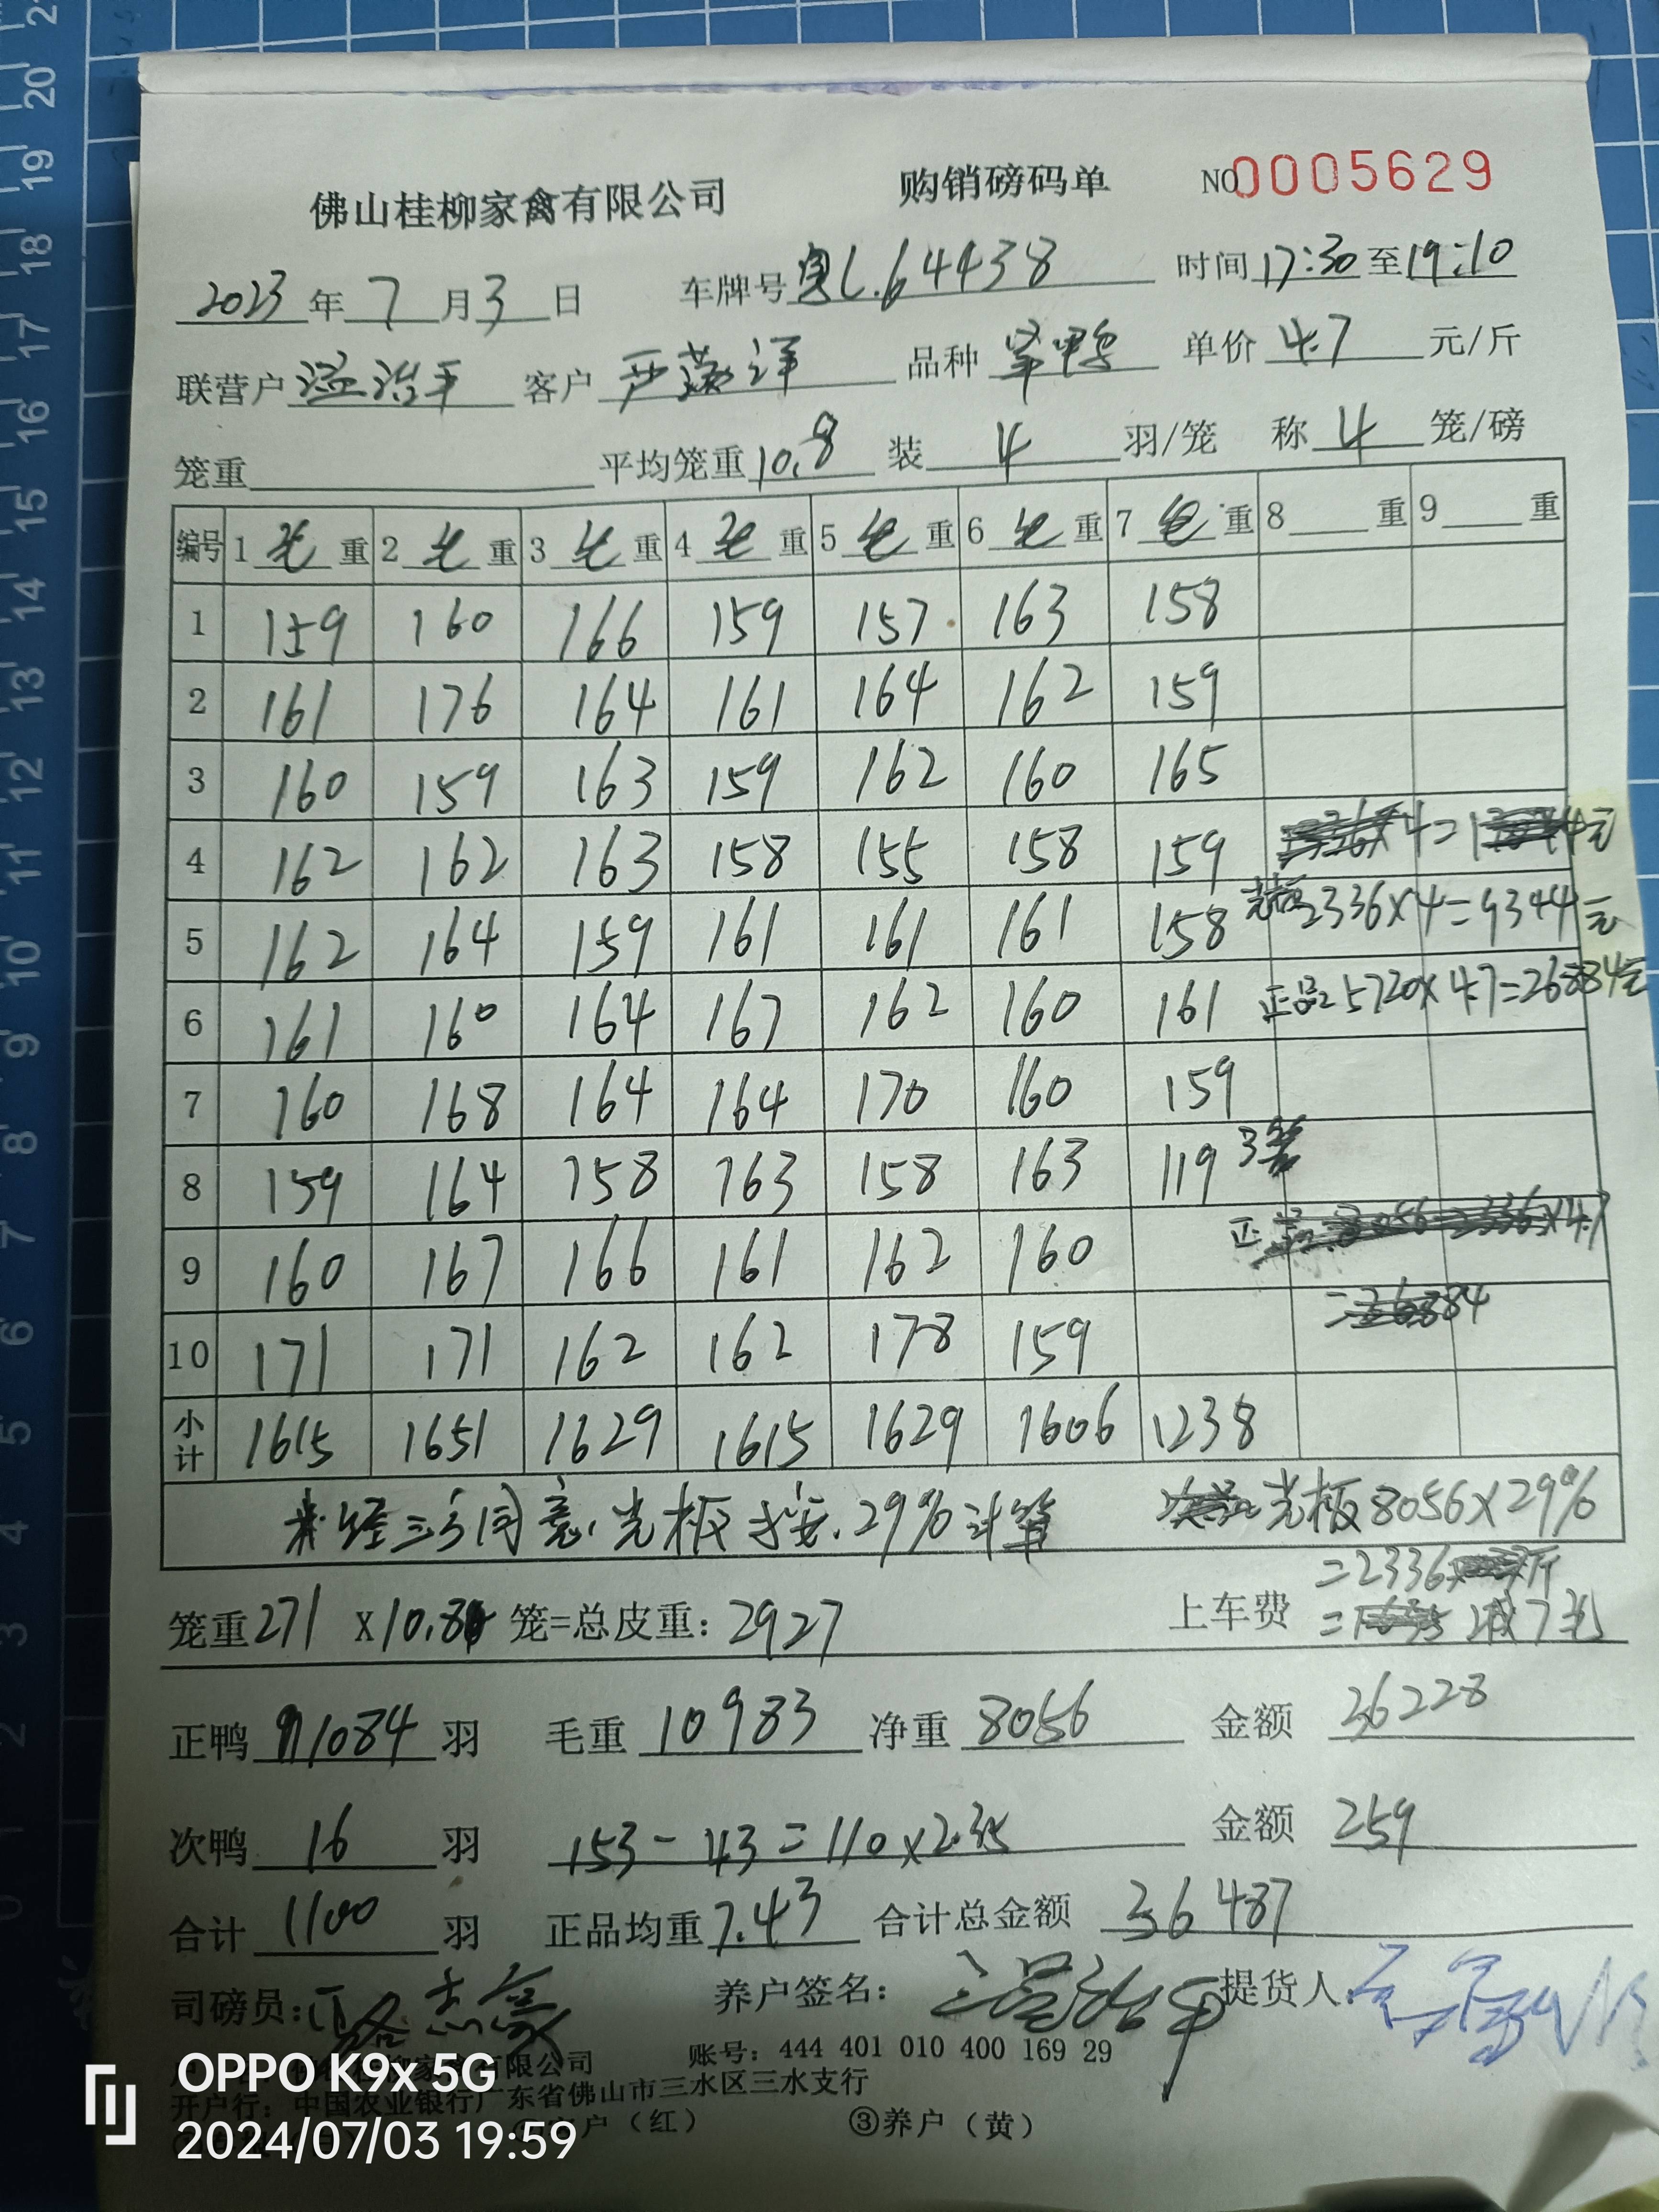 佛山桂柳家禽有限公司 购销磅码单 NO 0005629
2023 年 7 月 3 日 车牌号 粤L.64438 时间 17:30 至 19:10
联营户 温治平 客户 品种 单价 4.7 元/斤
笼重 平均笼重 10.8 装 4 羽/笼 称 4 笼/磅
编号 1 毛 重 2 毛 重 3 毛 重 4 毛 重 5 毛 重 6 毛 重 7 毛 重 8 重 9 重
1 159 160 166 159 157 163 158
2 161 176 164 161 164 162 159
3 160 159 163 159 162 160 165
4 162 162 163 158 155 158 159
5 162 164 159 161 161 161 158 光板2336×4=9344元
6 161 160 164 167 162 160 161 正品25720×4.7=26884元
7 160 168 164 164 170 160 159
8 159 164 158 163 158 163 119 3笼
9 160 167 166 161 162 160
10 171 171 162 162 178 159
小计 1615 1651 1629 1615 1629 1606 1238
经三方同意,光板按.29%计算 光板8056×29%
=2336 斤
笼重 271 X 10.8 笼=总皮重: 2927 上车费 减7毛
正鸭 1084 羽 毛重 10983 净重 8056 金额 36228
次鸭 16 羽 153-43=110×2.35 金额 259
合计 1100 羽 正品均重 7.43 合计总金额 36487
司磅员: 养户签名: 温治平 提货人:
有限公司 账号: 444 401 010 400 169 29
开户行: 中国农业银行广东省佛山市三水区三水支行
户(红) ③养户(黄)
OPPO K9x 5G
2024/07/03 19:59